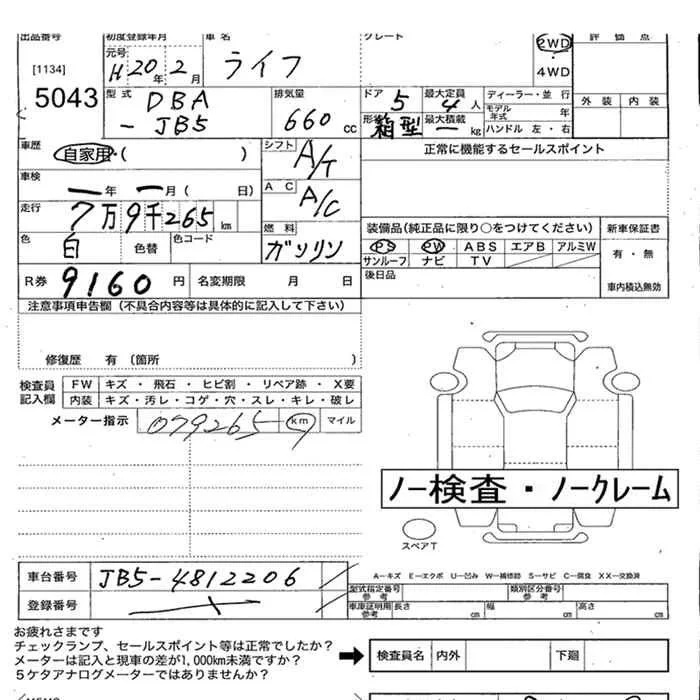 出品番号 初度登録年月 車名 グレード 2WD 評価点
[1134] 元号 H20年2月 ライフ 4WD
5043 型式 DBA 排気量 ドア 5 最大定員 4人 ディーラー・並行 外装 内装
-JB5 660cc 形状 箱型 最大積載 ー kg モデル年式 年
ハンドル 左・右
車歴 自家用・( ) シフト A/T 正常に機能するセールスポイント
車検 ー年ー月( 日) AC A/C
走行 7万9千265km 装備品(純正品に限り○をつけてください) 新車保証書
色 白 色替 色コード 燃料 ガソリン PS PW ABS エアB アルミW 有・無
サンルーフ ナビ TV
R券 9160円 名変期限 月 日 後日品 車内積込無効
注意事項申告欄(不具合内容等は具体的に記入して下さい)
修復歴 有(箇所 )
検査員記入欄 FW キズ・飛石・ヒビ割・リペア跡・X要
内装 キズ・汚レ・コゲ・穴・スレ・キレ・破レ
メーター指示 079265 km マイル
ノー検査・ノークレーム
スペアT
車台番号 JB5-4812206 A-キズ E-エクボ U-凹み W-補修跡 S-サビ C-腐食 XX-交換済
登録番号 型式指定番号 参考 類別区分番号 参考
車庫証明用 参考 長さ cm 幅 cm 高さ cm
お疲れさまです
チェックランプ、セールスポイント等は正常でしたか?
メーターは記入と現車の差が1,000km未満ですか? 検査員名 内外 下廻
5ケタアナログメーターではありませんか?